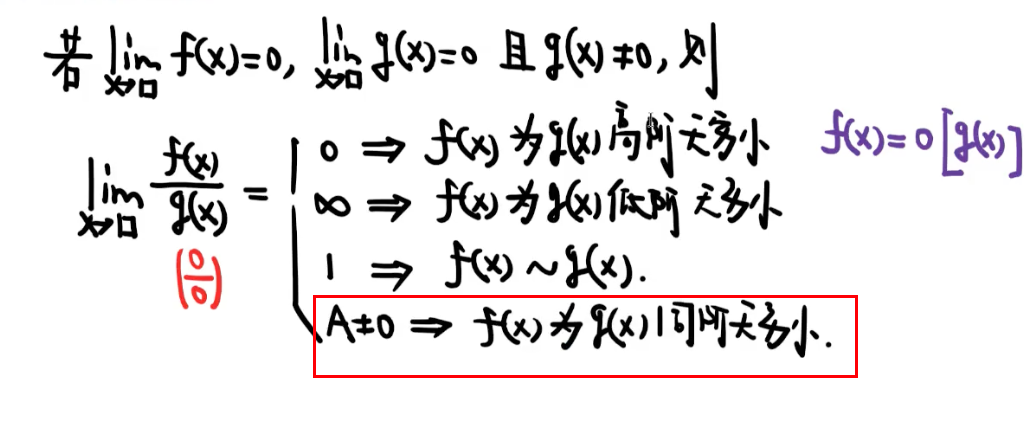 若 lim x→□ f(x)=0, lim x→□ g(x)=0 且 g(x)≠0, 则
lim x→□ f(x)/g(x) = {
(0/0)
0 ⇒ f(x) 为 g(x) 高阶无穷小 f(x)=0[g(x)]
∞ ⇒ f(x) 为 g(x) 低阶无穷小
1 ⇒ f(x) ~ g(x).
A≠0 ⇒ f(x) 为 g(x) 同阶无穷小.